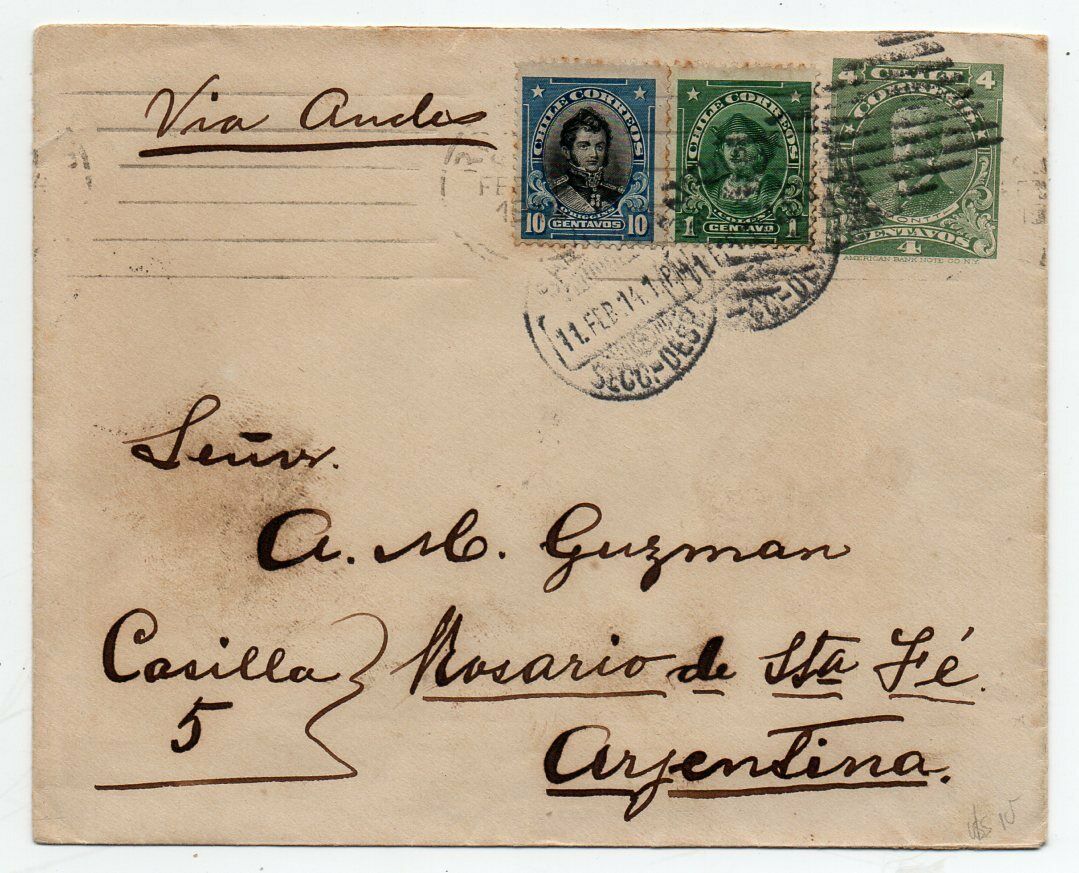 Via Andes
CHILE CORREOS
O'HIGGINS
10 CENTAVOS 10
CHILE CORREOS
COLON
1 CENTAVO 1
4 CHILE 4
CORREOS
CENTAVOS
4
AMERICAN BANK NOTE CO. N.Y.
FEB
11.FEB.14.1
11.F
Señor.
A. M. Guzman
Casilla Rosario de Sta Fé.
5
Argentina.
U$S 10